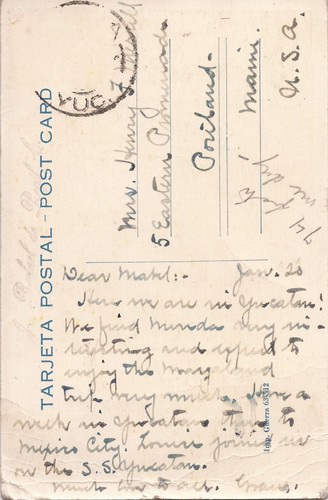 TARJETA POSTAL - POST CARD
YUC.
Mrs. Henry F.
5 Eastern Promenade
Portland -
Maine
U.S.A.
Dear Mabel:- Jan. 20
Here we are in Yucatan!
We find Merida very in-
teresting and expect to
enjoy the Mayaland
trip very much. I'm a
week in Yucatan then to
Mexico City. Louise joined us
on the S.S. Yucatan.
Much love to all.
Imp. Guerra